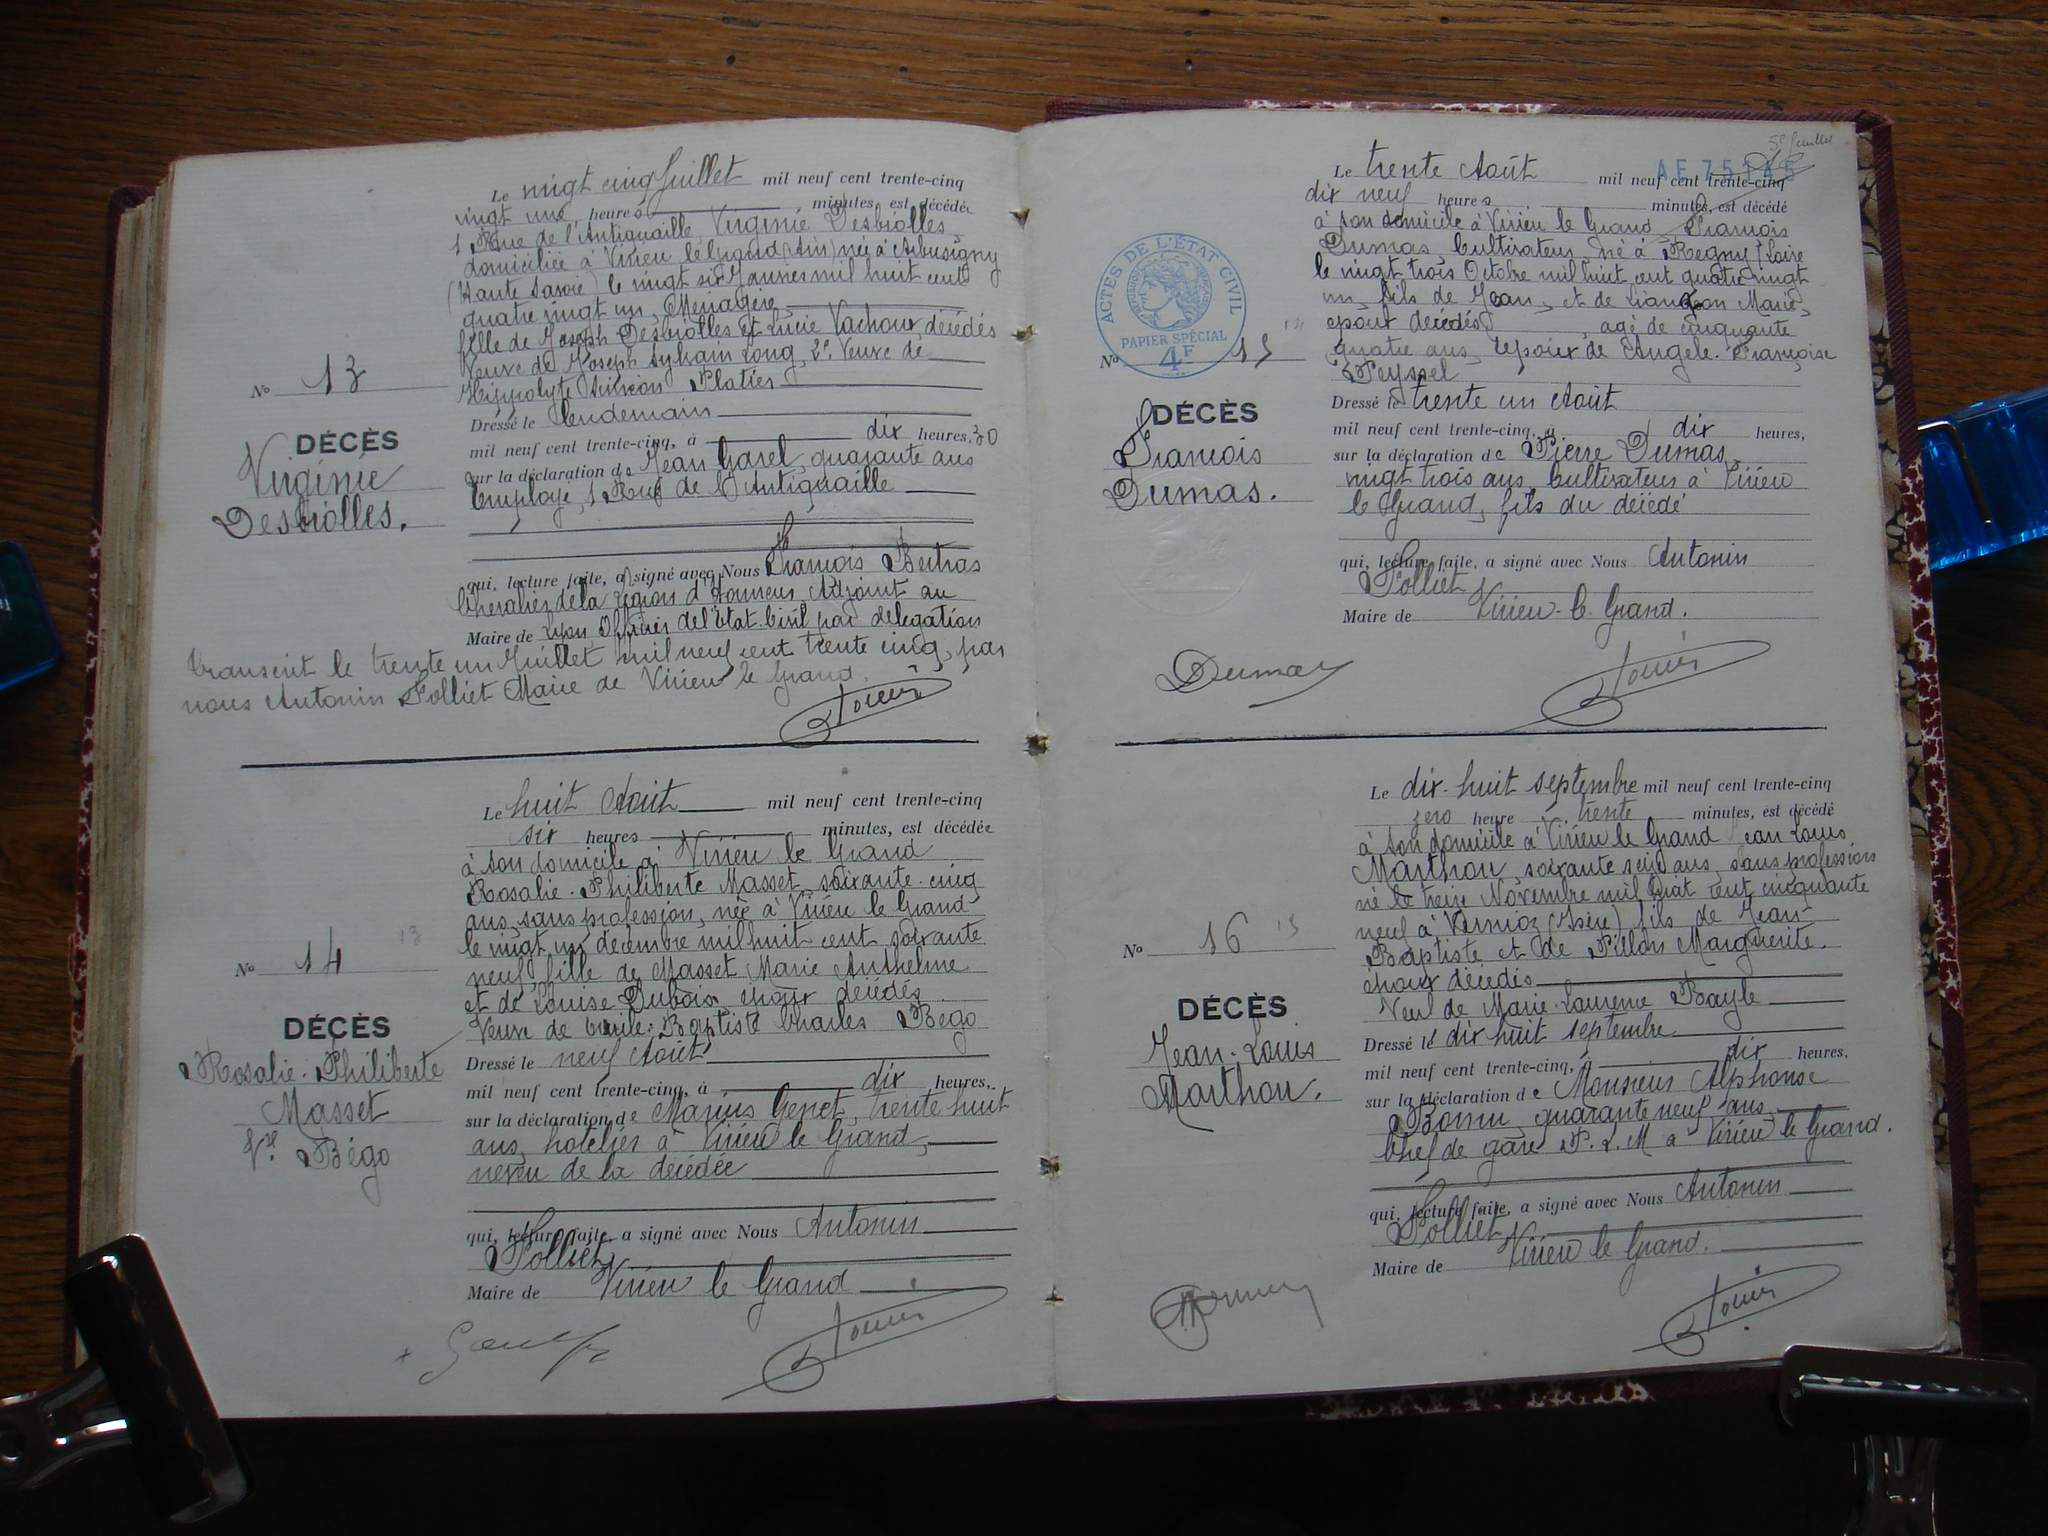 Le vingt cinq Juillet mil neuf cent trente-cinq
vingt une heures minutes est décédée
1 Rue de l'Antiquaille Virginie Desbiolles
domiciliée à Virieu le Grand (Ain) née à Arbusigny
(Haute Savoie) le vingt six Janvier mil huit cent
quatre vingt un, Ménagère
fille de Joseph Desbiolles et Lucie Vachoux décédés
Veuve de Joseph Sylvain Long, 2e Veuve de
Hippolyte Platier
No 13
DÉCÈS
Virginie
Desbiolles.
Dressé le lendemain
mil neuf cent trente-cinq, à dix heures, 30
sur la déclaration de Jean Garel, quarante ans
Employé, 1 Rue de l'Antiquaille
qui, lecture faite, a signé avec Nous François Bertras
Chevalier de la Légion d'Honneur Adjoint au
Maire de Lyon Officier de l'Etat-Civil par délégation
Transcrit le trente un Juillet mil neuf cent trente cinq, par
nous Antonin Folliet Maire de Virieu le Grand.
Le huit Août mil neuf cent trente-cinq
six heures minutes, est décédée
à son domicile à Virieu le Grand
Rosalie-Philiberte Masset, soixante-cinq
ans, sans profession, née à Virieu le Grand
le vingt un décembre mil huit cent soixante
neuf, fille de Masset Marie Anthelme
et de Louise Dubois époux décédés
Veuve de Baptiste Charles Bégo
No 14 13
DÉCÈS
Rosalie-Philiberte
Masset
Vve Bégo
Dressé le neuf Août
mil neuf cent trente-cinq, à dix heures,
sur la déclaration de Marius Genet, trente huit
ans, hôtelier à Virieu le Grand,
neveu de la décédée
qui, lecture faite, a signé avec Nous Antonin
Folliet
Maire de Virieu le Grand
5e feuillet
AE 75145
Le trente Août mil neuf cent trente-cinq
dix neuf heures minutes, est décédé
à son domicile à Virieu le Grand François
Dumas Cultivateur, né à Regny (Loire
le vingt trois Octobre mil huit cent quatre vingt
un, fils de Jean, et de Marie,
époux décédés, agé de cinquante
quatre ans, époux de Angèle-Françoise
Peyssel
ACTES DE L'ÉTAT CIVIL
PAPIER SPÉCIAL
4F
No 15 14
DÉCÈS
François
Dumas.
Dressé le trente un Août
mil neuf cent trente-cinq, à dix heures,
sur la déclaration de Pierre Dumas
vingt trois ans, Cultivateur à Virieu
le Grand, fils du décédé
qui, lecture faite, a signé avec Nous Antonin
Folliet
Maire de Virieu-le-Grand.
Dumas
Le dix-huit septembre mil neuf cent trente-cinq
zero heure trente minutes, est décédé
à son domicile à Virieu le Grand Jean Louis
Marthon, soixante seize ans, sans profession
né le treize Novembre mil huit cent cinquante
neuf à Vernioz (Isère) fils de Jean-
Baptiste et de Pillon Marguerite.
époux décédés
Veuf de Marie-Laurence Bayle
No 16 15
DÉCÈS
Jean-Louis
Marthon.
Dressé le dix huit septembre
mil neuf cent trente-cinq, à dix heures,
sur la déclaration de Monsieur Alphonse
quarante neuf ans
Chef de gare P.L.M à Virieu le Grand.
qui, lecture faite, a signé avec Nous Antonin
Folliet
Maire de Virieu le Grand.